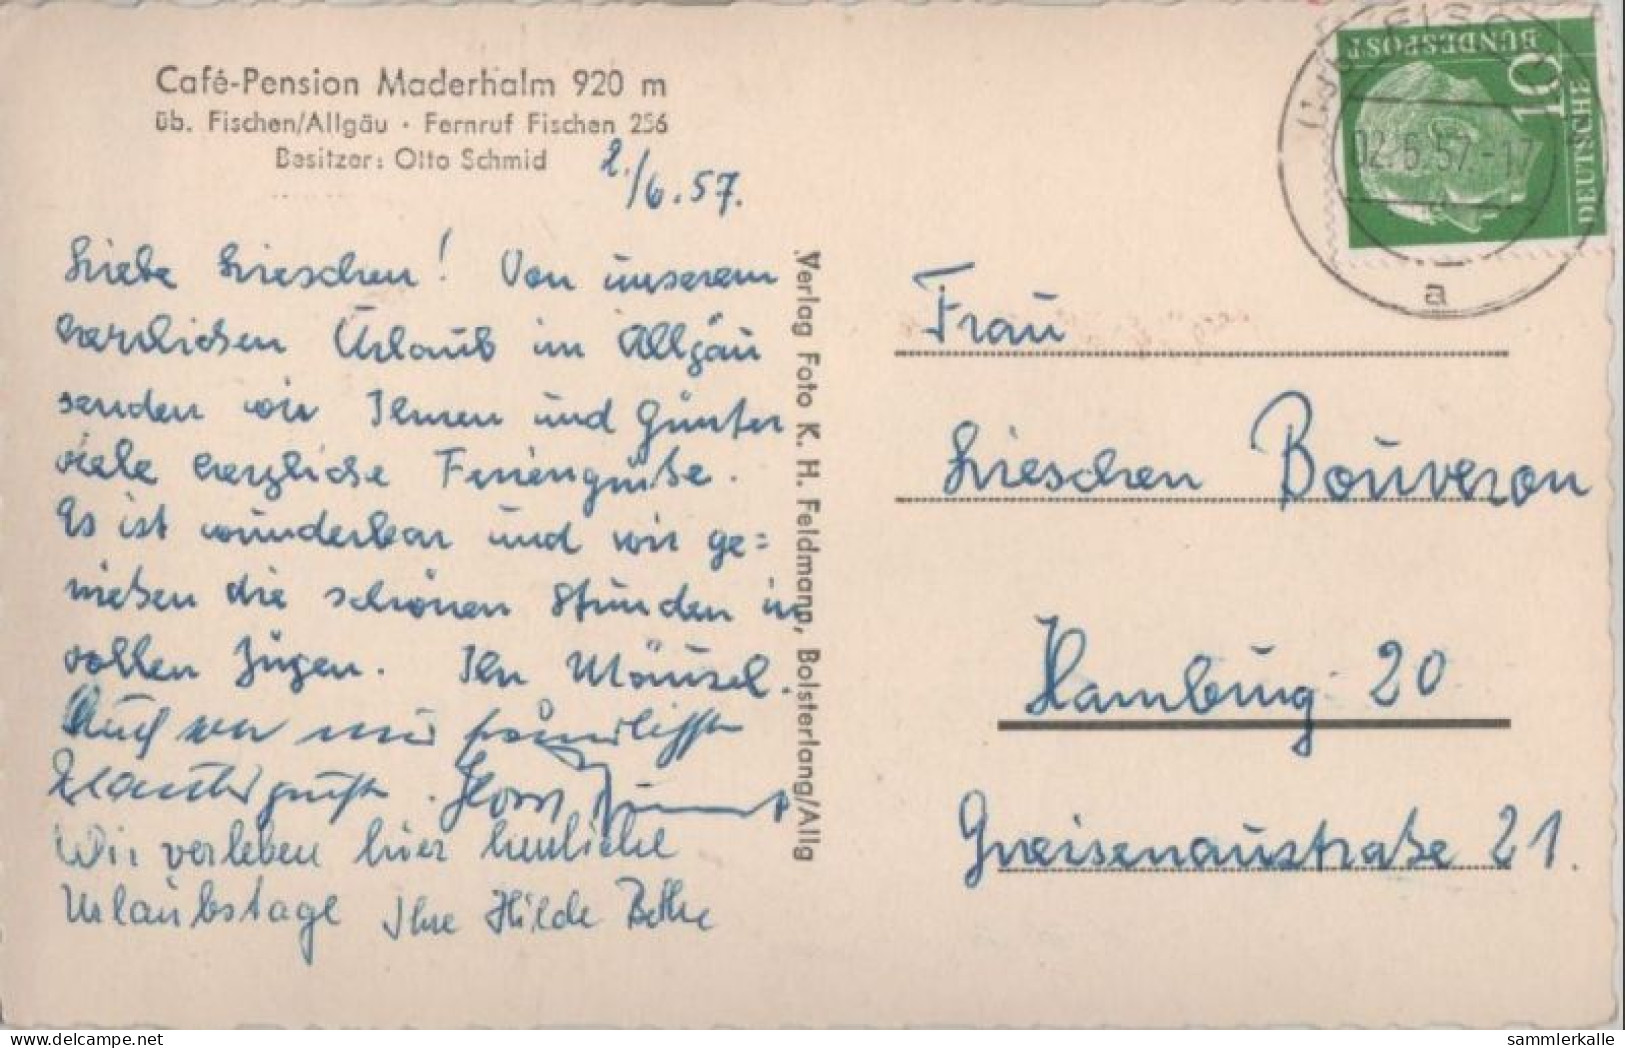 Café-Pension Maderhalm 920 m
üb. Fischen/Allgäu · Fernruf Fischen 256
Besitzer: Otto Schmid
2./6.57.
Liebe Lieschen! Von unserem
herrlichen Urlaub im Allgäu
senden wir Ihnen und Günter
viele herzliche Feriengrüße.
Es ist wunderbar und wir ge=
nießen die schönen Stunden in
vollen Zügen. Ihr Mäusel.
Auch von mir
Wir verleben hier herrliche
Urlaubstage Ihre Hilde Bethe
Verlag Foto K. H. Feldmann, Bolsterlang/Allg
DEUTSCHE
BUNDESPOST
10
02.6.57.-17
a
Frau
Lieschen Bouveron
Hamburg 20
Gneisenaustraße 21.
sammlerkalle